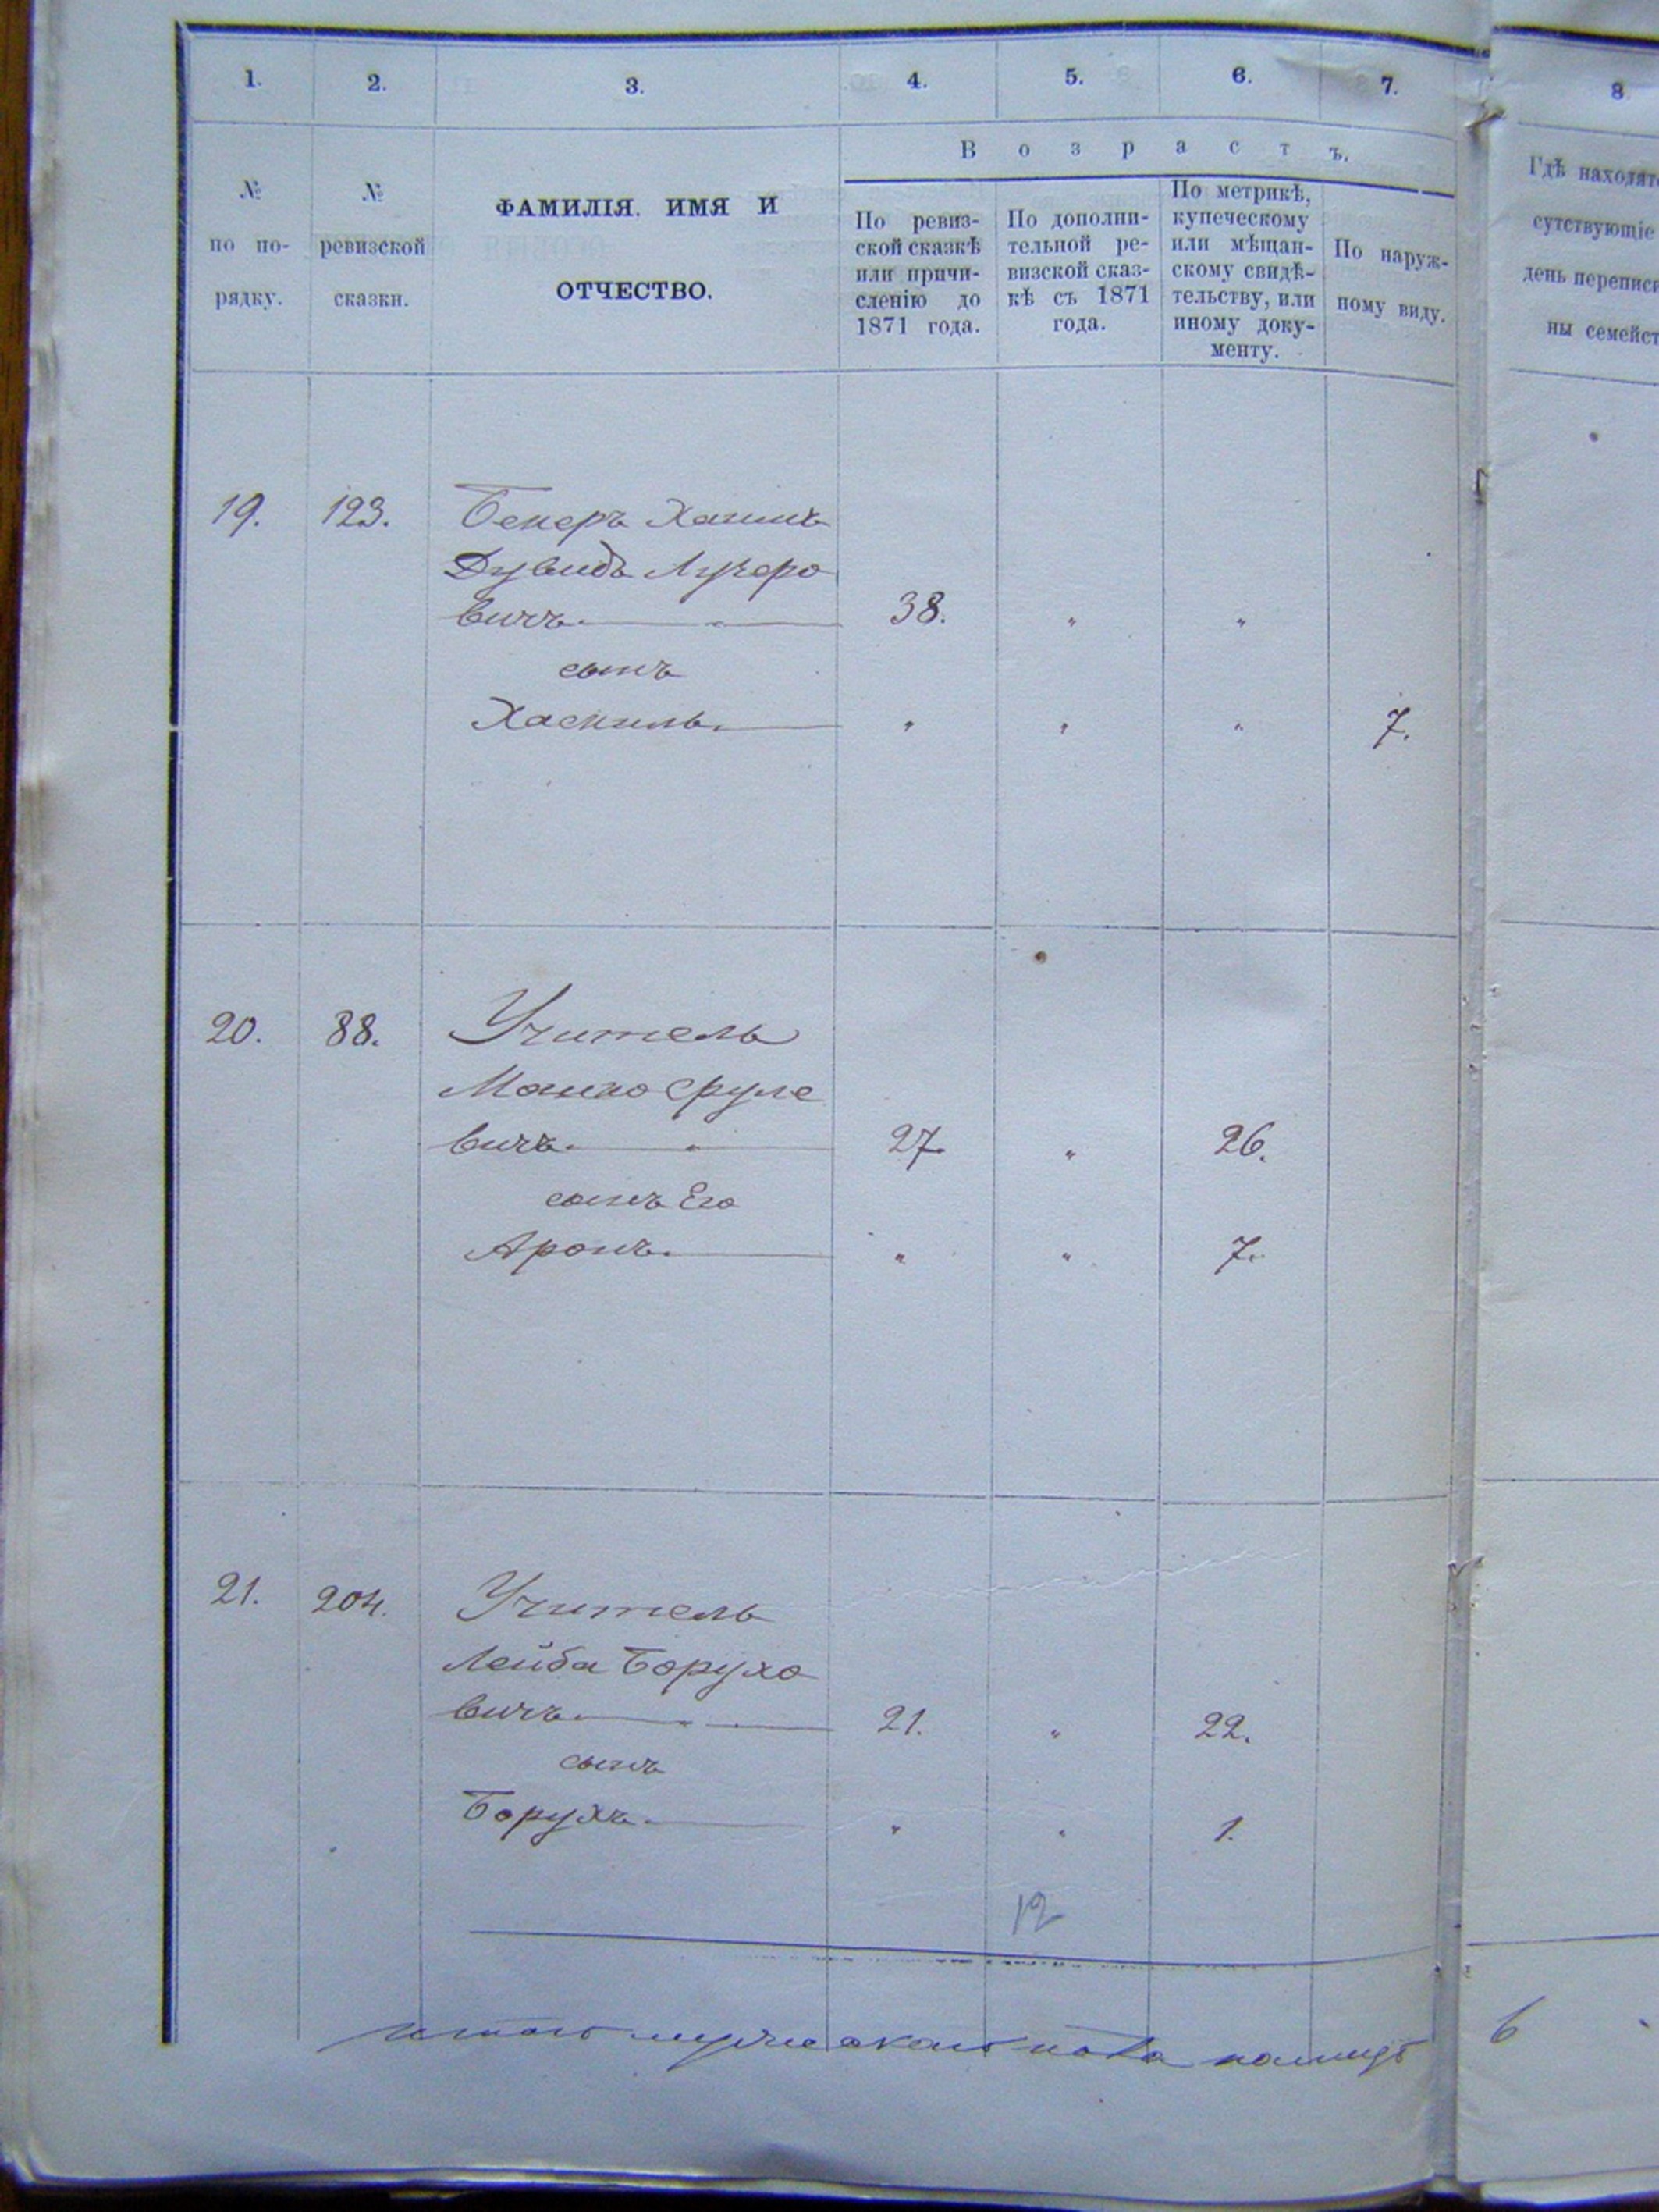 1. 2. 3. 4. 5. 6. 7. 8
Возрастъ.
№ по порядку.
№ ревизской сказки.
ФАМИЛІЯ, ИМЯ И
ОТЧЕСТВО.
По ревиз-
ской сказкѣ
или причи-
сленію до
1871 года.
По дополни-
тельной ре-
визской сказ-
кѣ съ 1871
года.
По метрикѣ,
купеческому
или мѣщан-
скому свидѣ-
тельству, или
иному доку-
менту.
По наруж-
ному виду.
Гдѣ находят
сутствующіе
день переписи
ны семейст
19. 123. Бекеръ Хаимъ
Дувидъ Лузеро
вичъ. 38. " "
сынъ
Хаскиль. " " " 7.
20. 88. Учитель
Мошко Сруле
вичъ. 27. " 26.
сынъ Его
Аронъ. " " 7.
21. 204. Учитель
Лейба Борухо
вичъ. 21. " 22.
сынъ
Борухъ. " " 1.
12
итого мужескаго пола 6